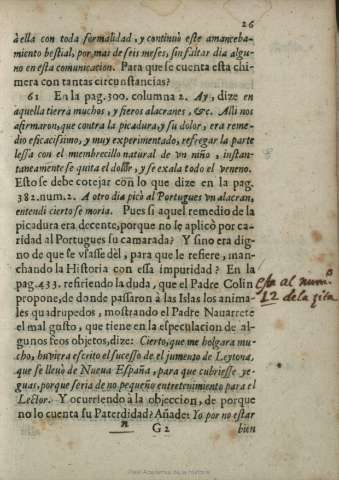 26
à ella con toda formalidad, y continuò este amanceba-
miento bestial, por mas de seis meses, sin faltar dia algu-
no en esta comunicacion. Para que se cuenta esta chi-
mera con tantas circunstancias?
61 En la pag. 300. columna 2. Ay, dize en
aquella tierra muchos, y fieros alacranes, &c. Alli nos
afirmaron, que contra la picadura, y su dolor, era reme-
dio eficacissimo, y muy experimentado, refregar la parte
lessa con el membrecillo natural de vn niño, instan-
taneamente se quita el dolor, y se exala todo el veneno.
Esto se debe cotejar con lo que dize en la pag.
382. num. 2. A otro dia picò al Portugues vn alacran,
entendi cierto se moria. Pues si aquel remedio de la
picadura era decente, porque no le aplicò por ca-
ridad al Portugues su camarada? Y sino era dig-
no de que se vsasse dèl, para que le refiere, man-
chando la Historia con essa impuridad? En la
pag. 433. refiriendo la duda, que el Padre Colin
propone, de donde passaron à las Islas los anima-
les quadrupedos, mostrando el Padre Nauarrete
el mal gusto, que tiene en la especulacion de al-
gunos feos objetos, dize: Cierto, que me holgara mu-
cho, huviera escrito el sucesso de el jumento de Leytona,
que se lleuò de Nueva España, para que cubriesse ye-
guas, porque seria de no pequeño entretenimiento para el
Lector. Y ocurriendo à la objeccion, de porque
no lo cuenta su Paterdidad? Añade: Yo por no estar
n G2 bien
esta al num.º
12 de la
Real Academia de la Historia